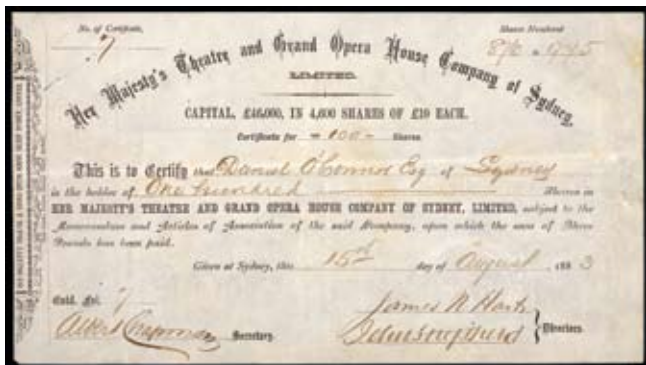 No. of Certificate,
7
Shares Numbered
846 to 945
Her Majesty's Theatre and Grand Opera House Company of Sydney,
LIMITED.
CAPITAL, £46,000, IN 4,600 SHARES OF £10 EACH.
Certificate for 100 Shares
This is to Certify that Daniel O'Connor Esq of Sydney
is the holder of One hundred Shares in
HER MAJESTY'S THEATRE AND GRAND OPERA HOUSE COMPANY OF SYDNEY, LIMITED, subject to the
Memorandum and Articles of Association of the said Company, upon which the sum of Three
Pounds has been paid.
Given at Sydney, this 15th day of August, 1883
Entd. Fol. 7
Albert Chapman Secretary.
James N Hart
Directors.